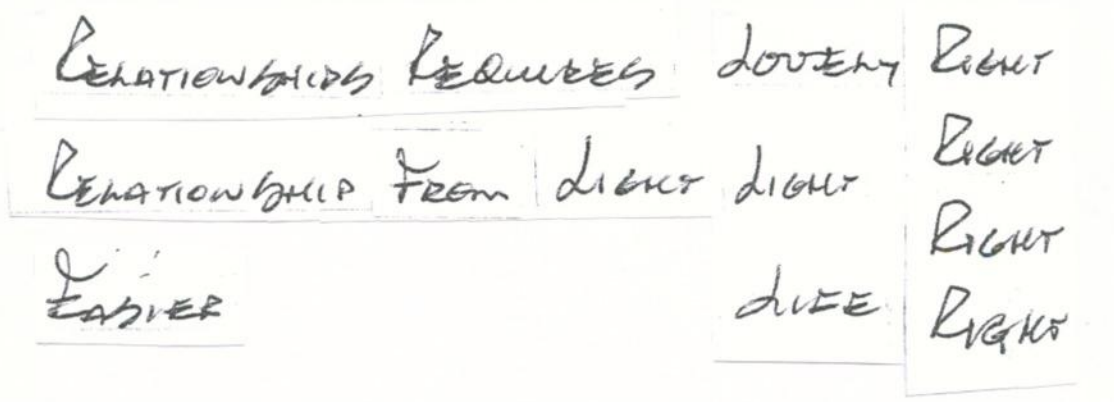 Relationships Requires Lovely Right
Right
Relationship From Light Light
Right
Easier Life Right